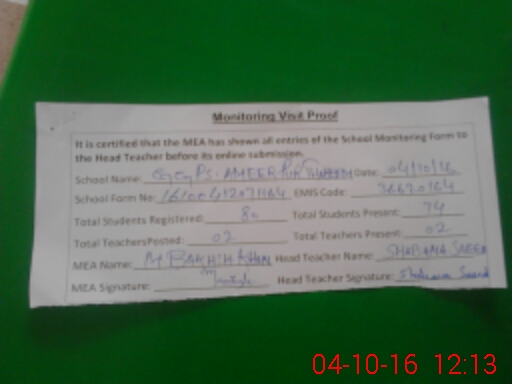 Monitoring Visit Proof
It is certified that the MEA has shown all entries of the School Monitoring Form to
the Head Teacher before its online submission.
School Name: GGPS AMEER PUR Date: 04/10/16
School Form No: EMIS Code:
Total Students Registered: 80 Total Students Present: 74
Total Teachers Posted: 02 Total Teachers Present: 02
MEA Name: M BAKHSH KHAN Head Teacher Name: SHABANA SAEED
MEA Signature: Head Teacher Signature: Shabana Saeed
04-10-16 12:13